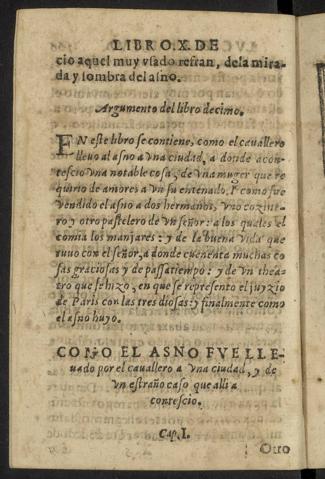 LIBRO.X.DE
cio aquel muy vsado refran, de la mira-
da y sombra del asno.
Argumento del libro decimo.
EN este libro se contiene, como el cauallero
lleuo al asno a vna ciudad, a donde acon-
tescio vna notable cosa, de vna muger que re
quirio de amores a vn su entenado. Y como fue
vendido el asno a dos hermanos, vno cozine-
ro y otro pastelero de vn señor: a los quales el
comia los manjares: y de la buena vida que
tuuo con el señor, a donde cuenenta muchas co
sas graciosas y de passatiempo: y de vn thea-
tro que se hizo, en que se represento el juyzio
de Paris con las tres diosas: y finalmente como
el asno huyo.
COMO EL ASNO FVE LLE-
uado por el cauallero a vna ciudad, y de
vn estraño caso que alli a
contescio.
Cap. I.
Otro